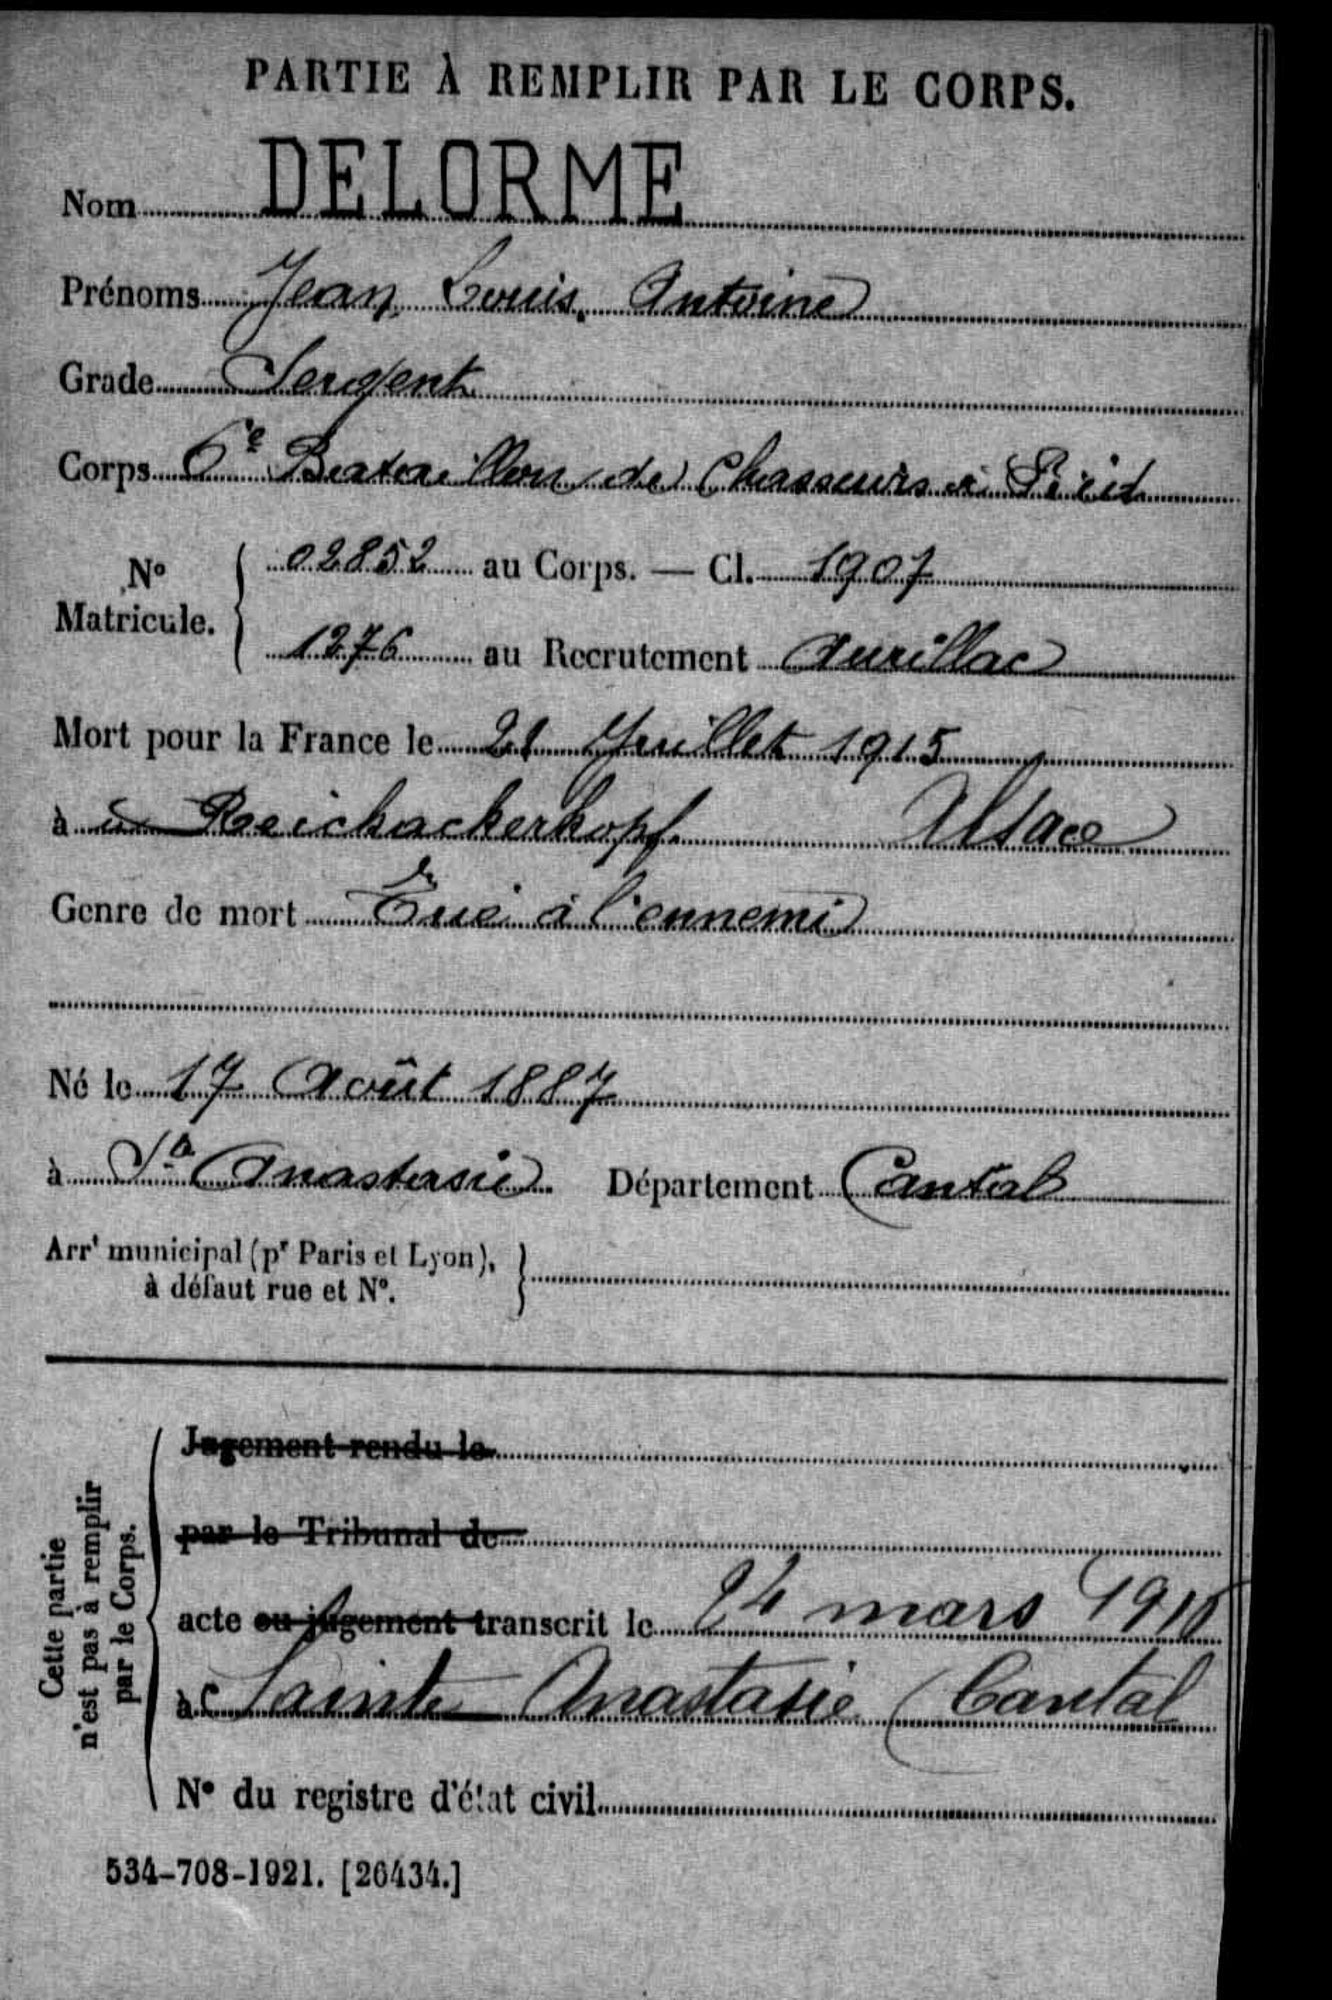 PARTIE À REMPLIR PAR LE CORPS.
Nom DELORME
Prénoms Jean Louis Antoine
Grade Sergent
Corps 6e Bataillon de Chasseurs à Pied
No Matricule. 02852 au Corps. — Cl. 1907
1276 au Recrutement Aurillac
Mort pour la France le 21 Juillet 1915
à Reichackerkopf Alsace
Genre de mort Tué à l'ennemi
Né le 17 Août 1887
à Ste Anastasie Département Cantal
Arrt municipal (pr Paris et Lyon), à défaut rue et No.
Cette partie n'est pas à remplir par le Corps.
Jugement rendu le
par le Tribunal de
acte ou jugement transcrit le 24 mars
à Sainte Anastasie (Cantal
No du registre d'état civil
534-708-1921. [26434.]